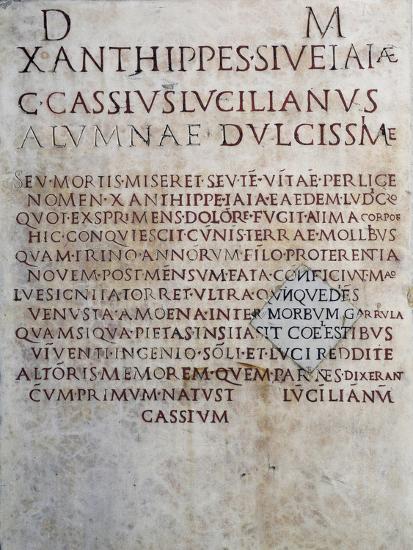 D M
XANTHIPPES·SIVE·IAIÆ
C·CASSIVS·LVCILIANVS
ALVMNAE DVLCISSME
SEV·MORTIS·MISERET·SEV·TE·VITAE·PERLIGE
NOMEN·XANTHIPPE·IAIA·EAEDEM·LVDCRO
QVOT·EXSPRIMENS·DOLORE·FVGIT·AIIMA·CORPOE
HIC·CONQVIESCIT·CVNIS·TERRAE·MOLLBVS
QVAM·IRINO·ANNORVM·FILO·PROTERENTIA
NOVEM·POST·MENSVM·FATA·CONFICIVNT·MAO
LVES·IGNITA·TORRET·VLTRA·QVNQVE·DES
VENVSTA·AMOENA·INTER MORBVM GARRVLA
QVAM·SIQVA·PIETAS·INSIIA·SIT COELESTIBVS
VIVENTI·INGENIO·SOLI·ET·LVCI REDDITE
ALTORIS·MEMOREM·QVEM·PARNES·DIXERANT
CVM·PRIMVM·NATVST LVCILIANVM
CASSIVM